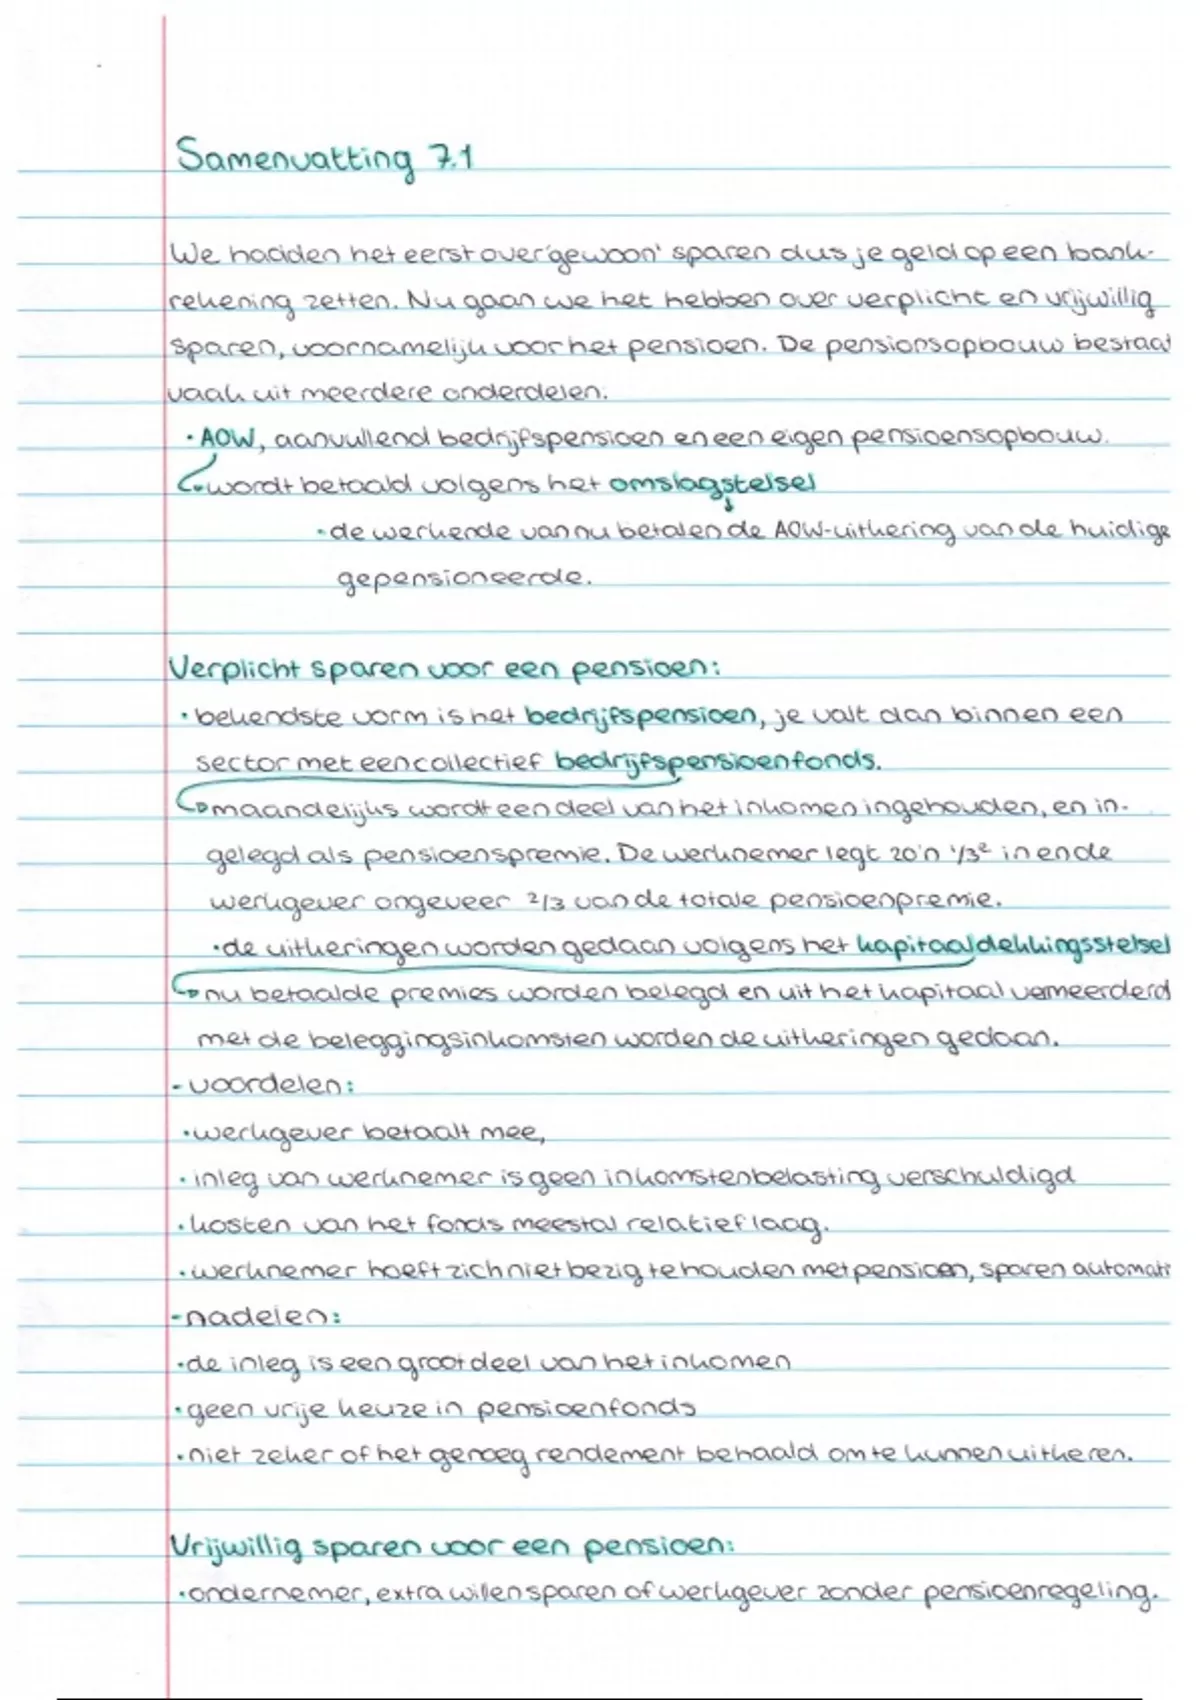 Samenvatting 7.1
We hadden het eerst over 'gewoon' sparen dus je geld op een bank-
rekening zetten. Nu gaan we het hebben over verplicht en vrijwillig
sparen, voornamelijk voor het pensioen. De pensionsopbouw bestaat
vaak uit meerdere onderdelen:
· AOW, aanvullend bedrijfspensioen en een eigen pensioensopbouw.
wordt betaald volgens het omslagstelsel
· de werkende van nu betalen de AOW-uitkering van de huidige
gepensioneerde.
Verplicht sparen voor een pensioen:
· bekendste vorm is het bedrijfspensioen, je valt dan binnen een
sector met een collectief bedrijfspensioenfonds.
maandelijks wordt een deel van het inkomen ingehouden, en in-
gelegd als pensioenspremie. De werknemer legt zo'n 1/3e in en de
werkgever ongeveer 2/3 van de totale pensioenpremie.
· de uitkeringen worden gedaan volgens het kapitaaldekkingsstelsel
nu betaalde premies worden belegd en uit het kapitaal vermeerderd
met de beleggingsinkomsten worden de uitkeringen gedaan.
- voordelen:
· werkgever betaalt mee,
· inleg van werknemer is geen inkomstenbelasting verschuldigd
· kosten van het fonds meestal relatief laag.
· werknemer hoeft zich niet bezig te houden met pensioen, sparen automati
- nadelen:
· de inleg is een groot deel van het inkomen
· geen vrije keuze in pensioenfonds
· niet zeker of het genoeg rendement behaald om te kunnen uitkeren.
Vrijwillig sparen voor een pensioen:
· ondernemer, extra willen sparen of werkgever zonder pensioenregeling.